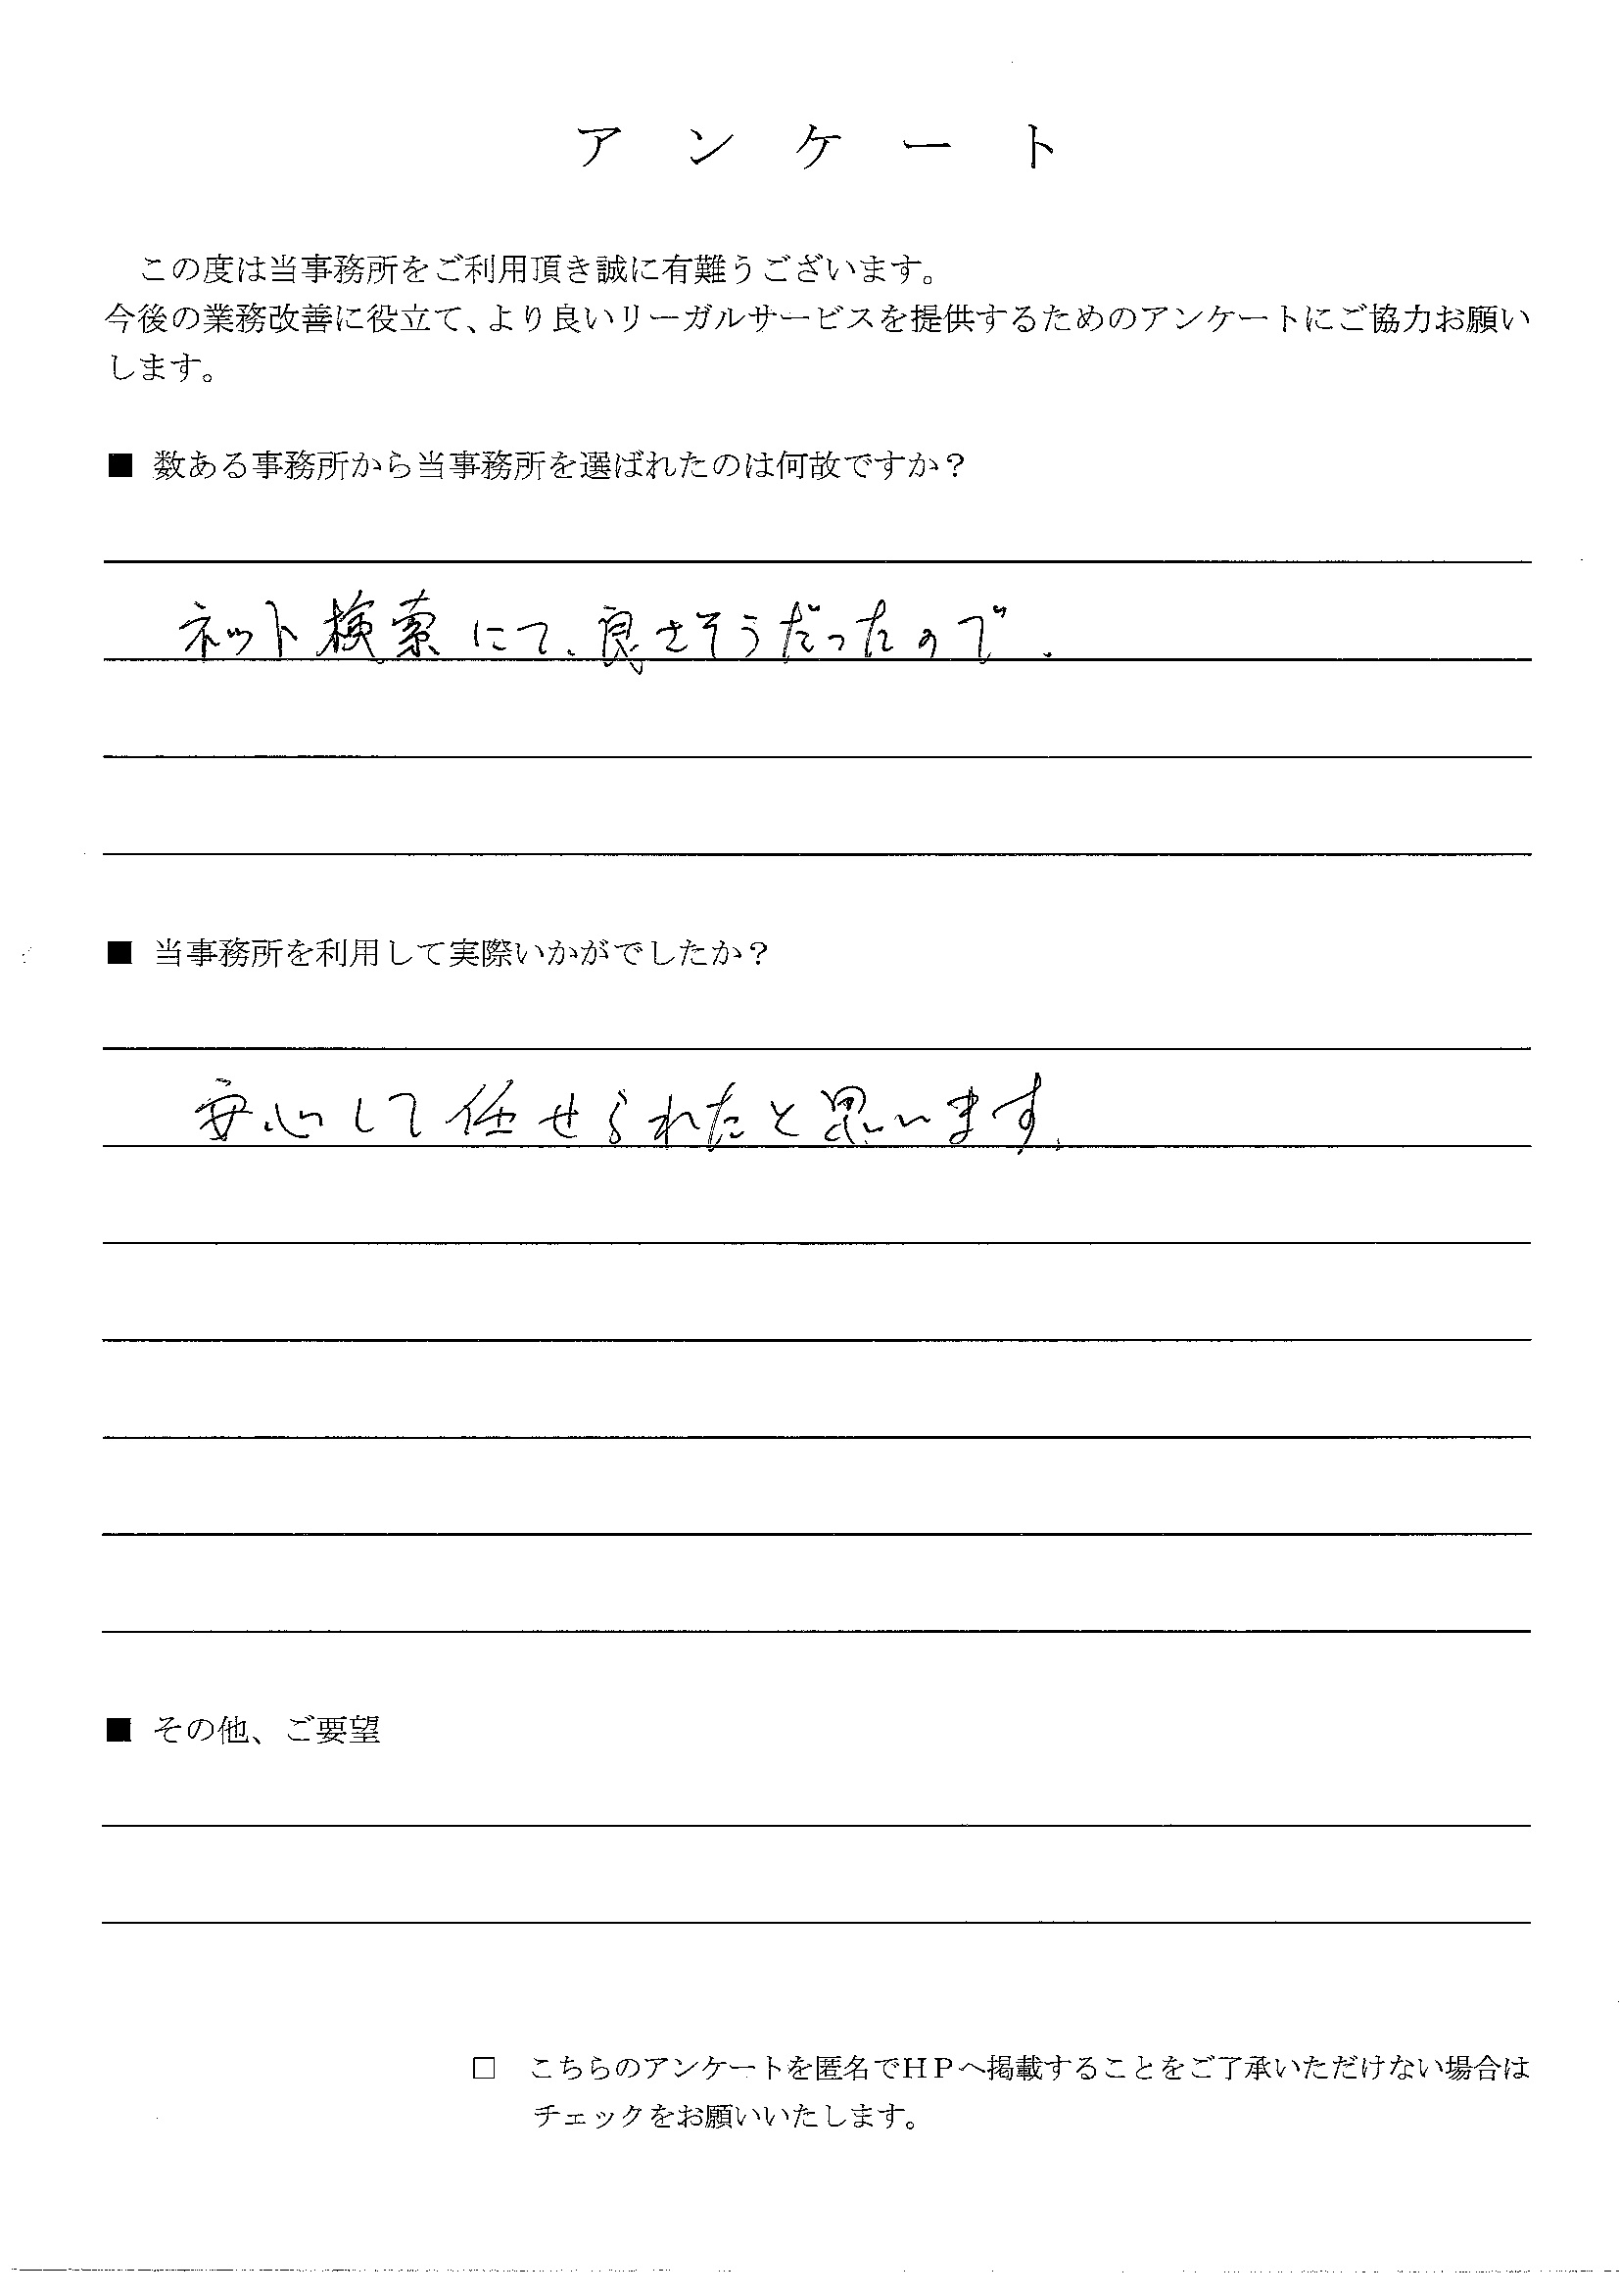 アンケート
この度は当事務所をご利用頂き誠に有難うございます。
今後の業務改善に役立て、より良いリーガルサービスを提供するためのアンケートにご協力お願い
します。
■ 数ある事務所から当事務所を選ばれたのは何故ですか？
ネット検索にて、良さそうだったので.
■ 当事務所を利用して実際いかがでしたか？
安心して任せられたと思います.
■ その他、ご要望
□ こちらのアンケートを匿名でＨＰへ掲載することをご了承いただけない場合は
チェックをお願いいたします。